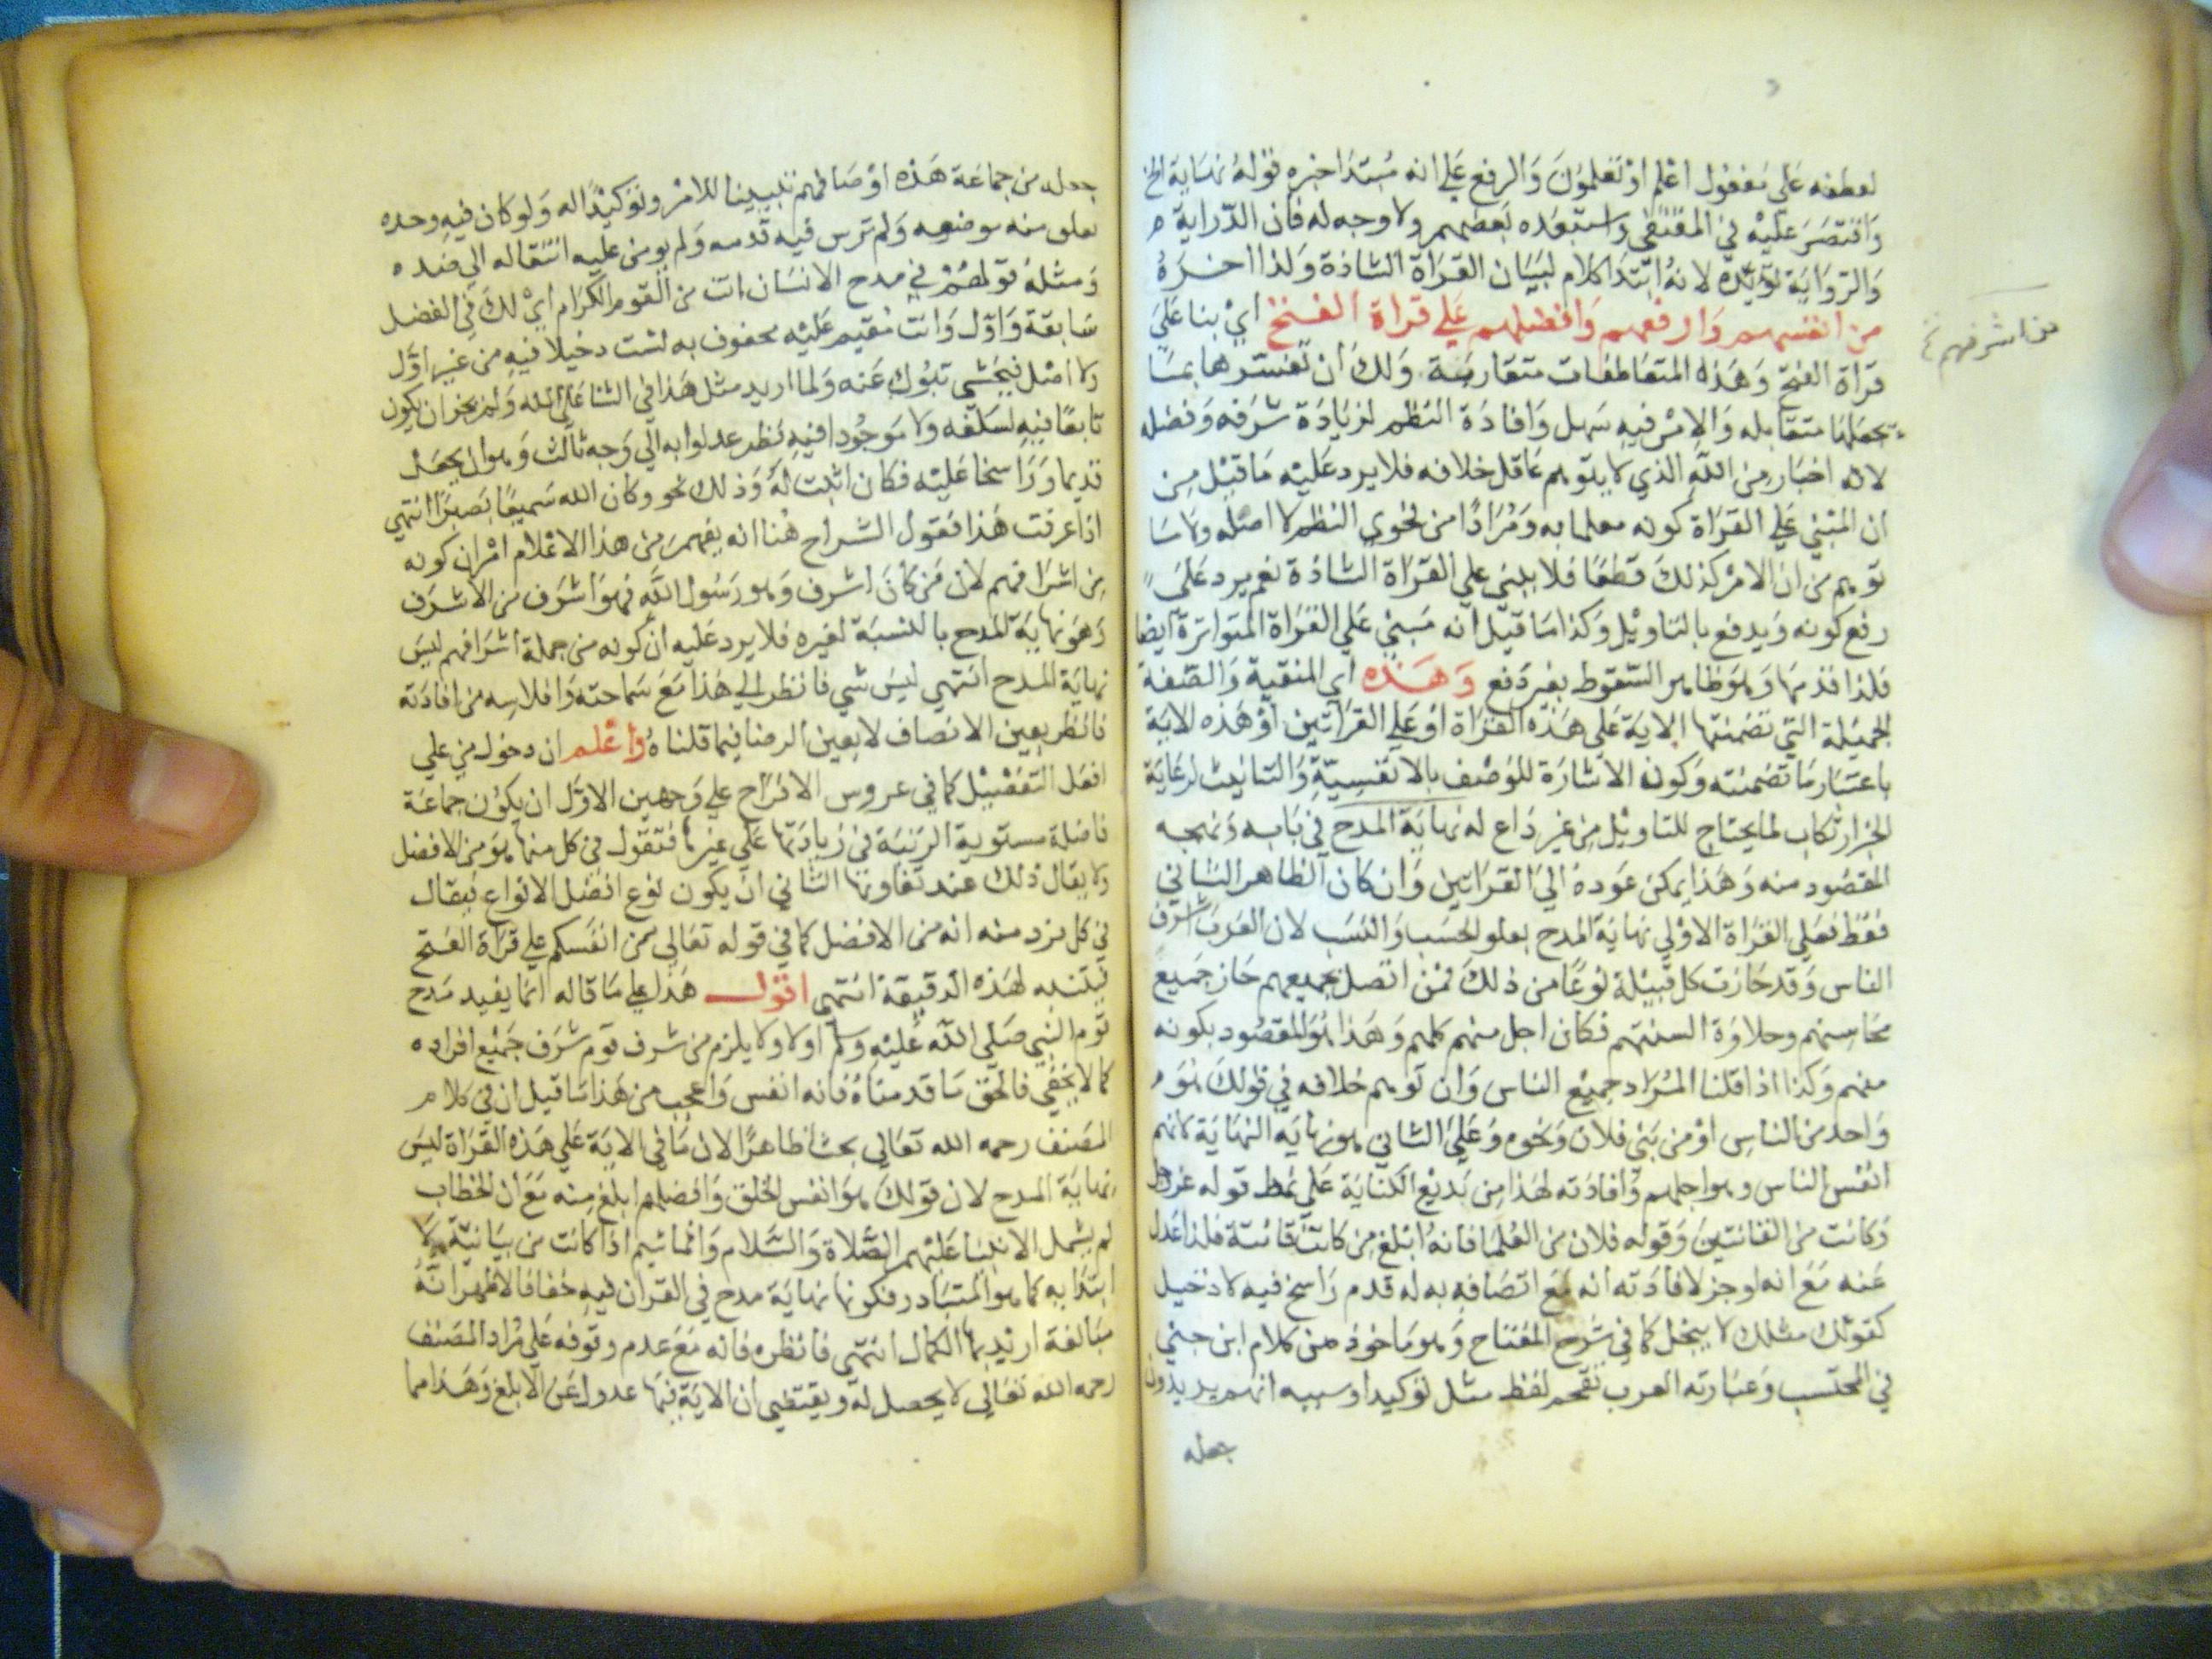 لعطفه على مفعول اعلم او تعلمون والرفع علي انه مبتدا خبره قوله نهاية الخ
واقتصر عليه في المقتفي واستبعده بعضهم ولا وجه له فان الدراية
والرواية تؤيده لانه ابتدا كلام لبيان القراة الشاذة ولذا اخره
من انفسهم وارفعهم وافضلهم علي قراة الفتح اي بنا علي
من اشرفهم
قراة الفتح وهذه المتعاطفات متقاربة ولك ان تفسرها بما
يجعلها متقابله والامر فيه سهل وافادة النظم لزيادة شرفه وفضله
لانه اخبار من الله الذي لا يتوهم عاقل خلافه فلا يرد عليه ما قيل من
ان المبني علي القراة كونه معلما به ومرادا من فحوي النظم لا اصله ولا سا
توهم من ان الامر كذلك قطعا فلا يبني علي القراة الشاذة نعم يرد علي
رفع كونه ويدفع بالتاويل وكذا ما قيل انه مبني علي القراة المتواترة ايضا
فلذا قدمها وهو ظاهر السقوط بغير دفع وهذه اي المنقبة والصفة
الجميلة التي تضمنتها الاية علي هذه القراة او علي القراتين او هذه الاية
باعتبار ما تضمنته وكون الاشارة للوصف بالانفسية والتانيث لرعاية
الخبر ارتكاب لما يحتاج للتاويل من غير داع له نهاية المدح في بابه ونهجه
المقصود منه وهذا يمكن عوده الي القراتين وان كان الظاهر الثاني
فقط فعلي القراة الاولي نهاية المدح بعلو الحسب والنسب لان العرب اشرف
الناس وقد حازت كل قبيلة نوعا من ذلك فمن اتصل بجميعهم حاز جميع
محاسنهم وحلاوة السنتهم فكان اجل منهم كلهم وهذا هو المقصود بكونه
منهم وكذا اذا قلنا المراد جميع الناس وان توهم خلافه في قولك هو
واحد من الناس او من بني فلان ونحوه وعلي الثاني هو نهاية النهاية لانهم
انفس الناس وهو اجلهم وافادته لهذا من بديع الكناية علي نمط قوله عز وجل
وكانت من القانتين وقوله فلان من العلما فانه ابلغ من كانت قانتة فلذا عدل
عنه مع انه اوجز لافادته انه مع اتصافه به له قدم راسخ فيه لا دخيل
كقولك مثلك لا يبخل كما في شرح المفتاح وهو ماخوذ من كلام ابن جني
في المحتسب وعبارته العرب تقحم لفظ مثل توكيدا وسببه انهم يريدون
جعله
جعله من جماعة هذه اوصافهم تبيينا للامر وتوكيدا له ولو كان فيه وحده
لقلق منه موضعه ولم ترس فيه قدمه ولم يومن عليه انتقاله الي ضده
ومثله قولهم في مدح الانسان انت من القوم الكرام اي لك في الفضل
سابقة واول وانت مقيم عليه محفوف به لست دخيلا فيه من غير اول
ولا اصل فيخشي نبوك عنه ولما اريد مثل هذا في الثنا علي الله ولم يجز ان يكون
تابعا فيه لسلفه ولا موجودا فيه نظر عدلوا به الي وجه ثالث وهو ان يجعل
قديما وراسخا عليه فكان اثبت له وذلك نحو وكان الله سميعا بصيرا انتهي
اذا عرفت هذا فقول الشراح هنا انه يفهم من هذا الاعلام امران كونه
من اشرافهم لان من كان اشرف وهو رسول الله فهو اشرف من الاشرف
وهو نهاية المدح بالنسبة لغيره فلا يرد عليه ان كونه من جملة اشرافهم ليس
نهاية المدح انتهي ليس شي فانظر الي هذا مع سماحته وافلاسه من افادته
فانظر بعين الانصاف لا بعين الرضا فيما قلناه واعلم ان دخول من علي
افعل التفضيل كما في عروس الافراح علي وجهين الاول ان يكون جماعة
فاضلة مستوية الرتبة في زيادتها علي غيرها فتقول في كل منها هو من الافضل
ولا يقال ذلك عند تفاوتها الثاني ان يكون نوع افضل الانواع فيقال
في كل فرد منه انه من الافضل كما في قوله تعالي من انفسكم علي قراة الفتح
فيتنبه لهذه الدقيقة انتهي اقول هذا علي ما قاله انما يفيد مدح
قوم النبي صلي الله عليه وسلم اولا ولا يلزم من شرف قوم شرف جميع افراده
كما لا يخفي فالحق ما قدمناه فانه انفس واعجب من هذا ما قيل ان في كلام
المصنف رحمه الله تعالي بحثا ظاهرا لان ما في الاية علي هذه القراة ليس
نهاية المدح لان قولك هو انفس الخلق وافضلهم ابلغ منه مع ان الخطاب
لم يشمل الانبيا عليهم الصلاة والسلام وانما يتم اذا كانت من بيانية لا
ابتدايه كما هو المتبادر فكونها نهاية مدح في القران فيه خفا فالاظهر انه
مبالغة اريد بها الكمال انتهي فانظره فانه مع عدم وقوفه علي مراد المصنف
رحمه الله تعالي لا يحصل له ويقتضي ان الاية فيها عدول عن الابلغ وهذا مما